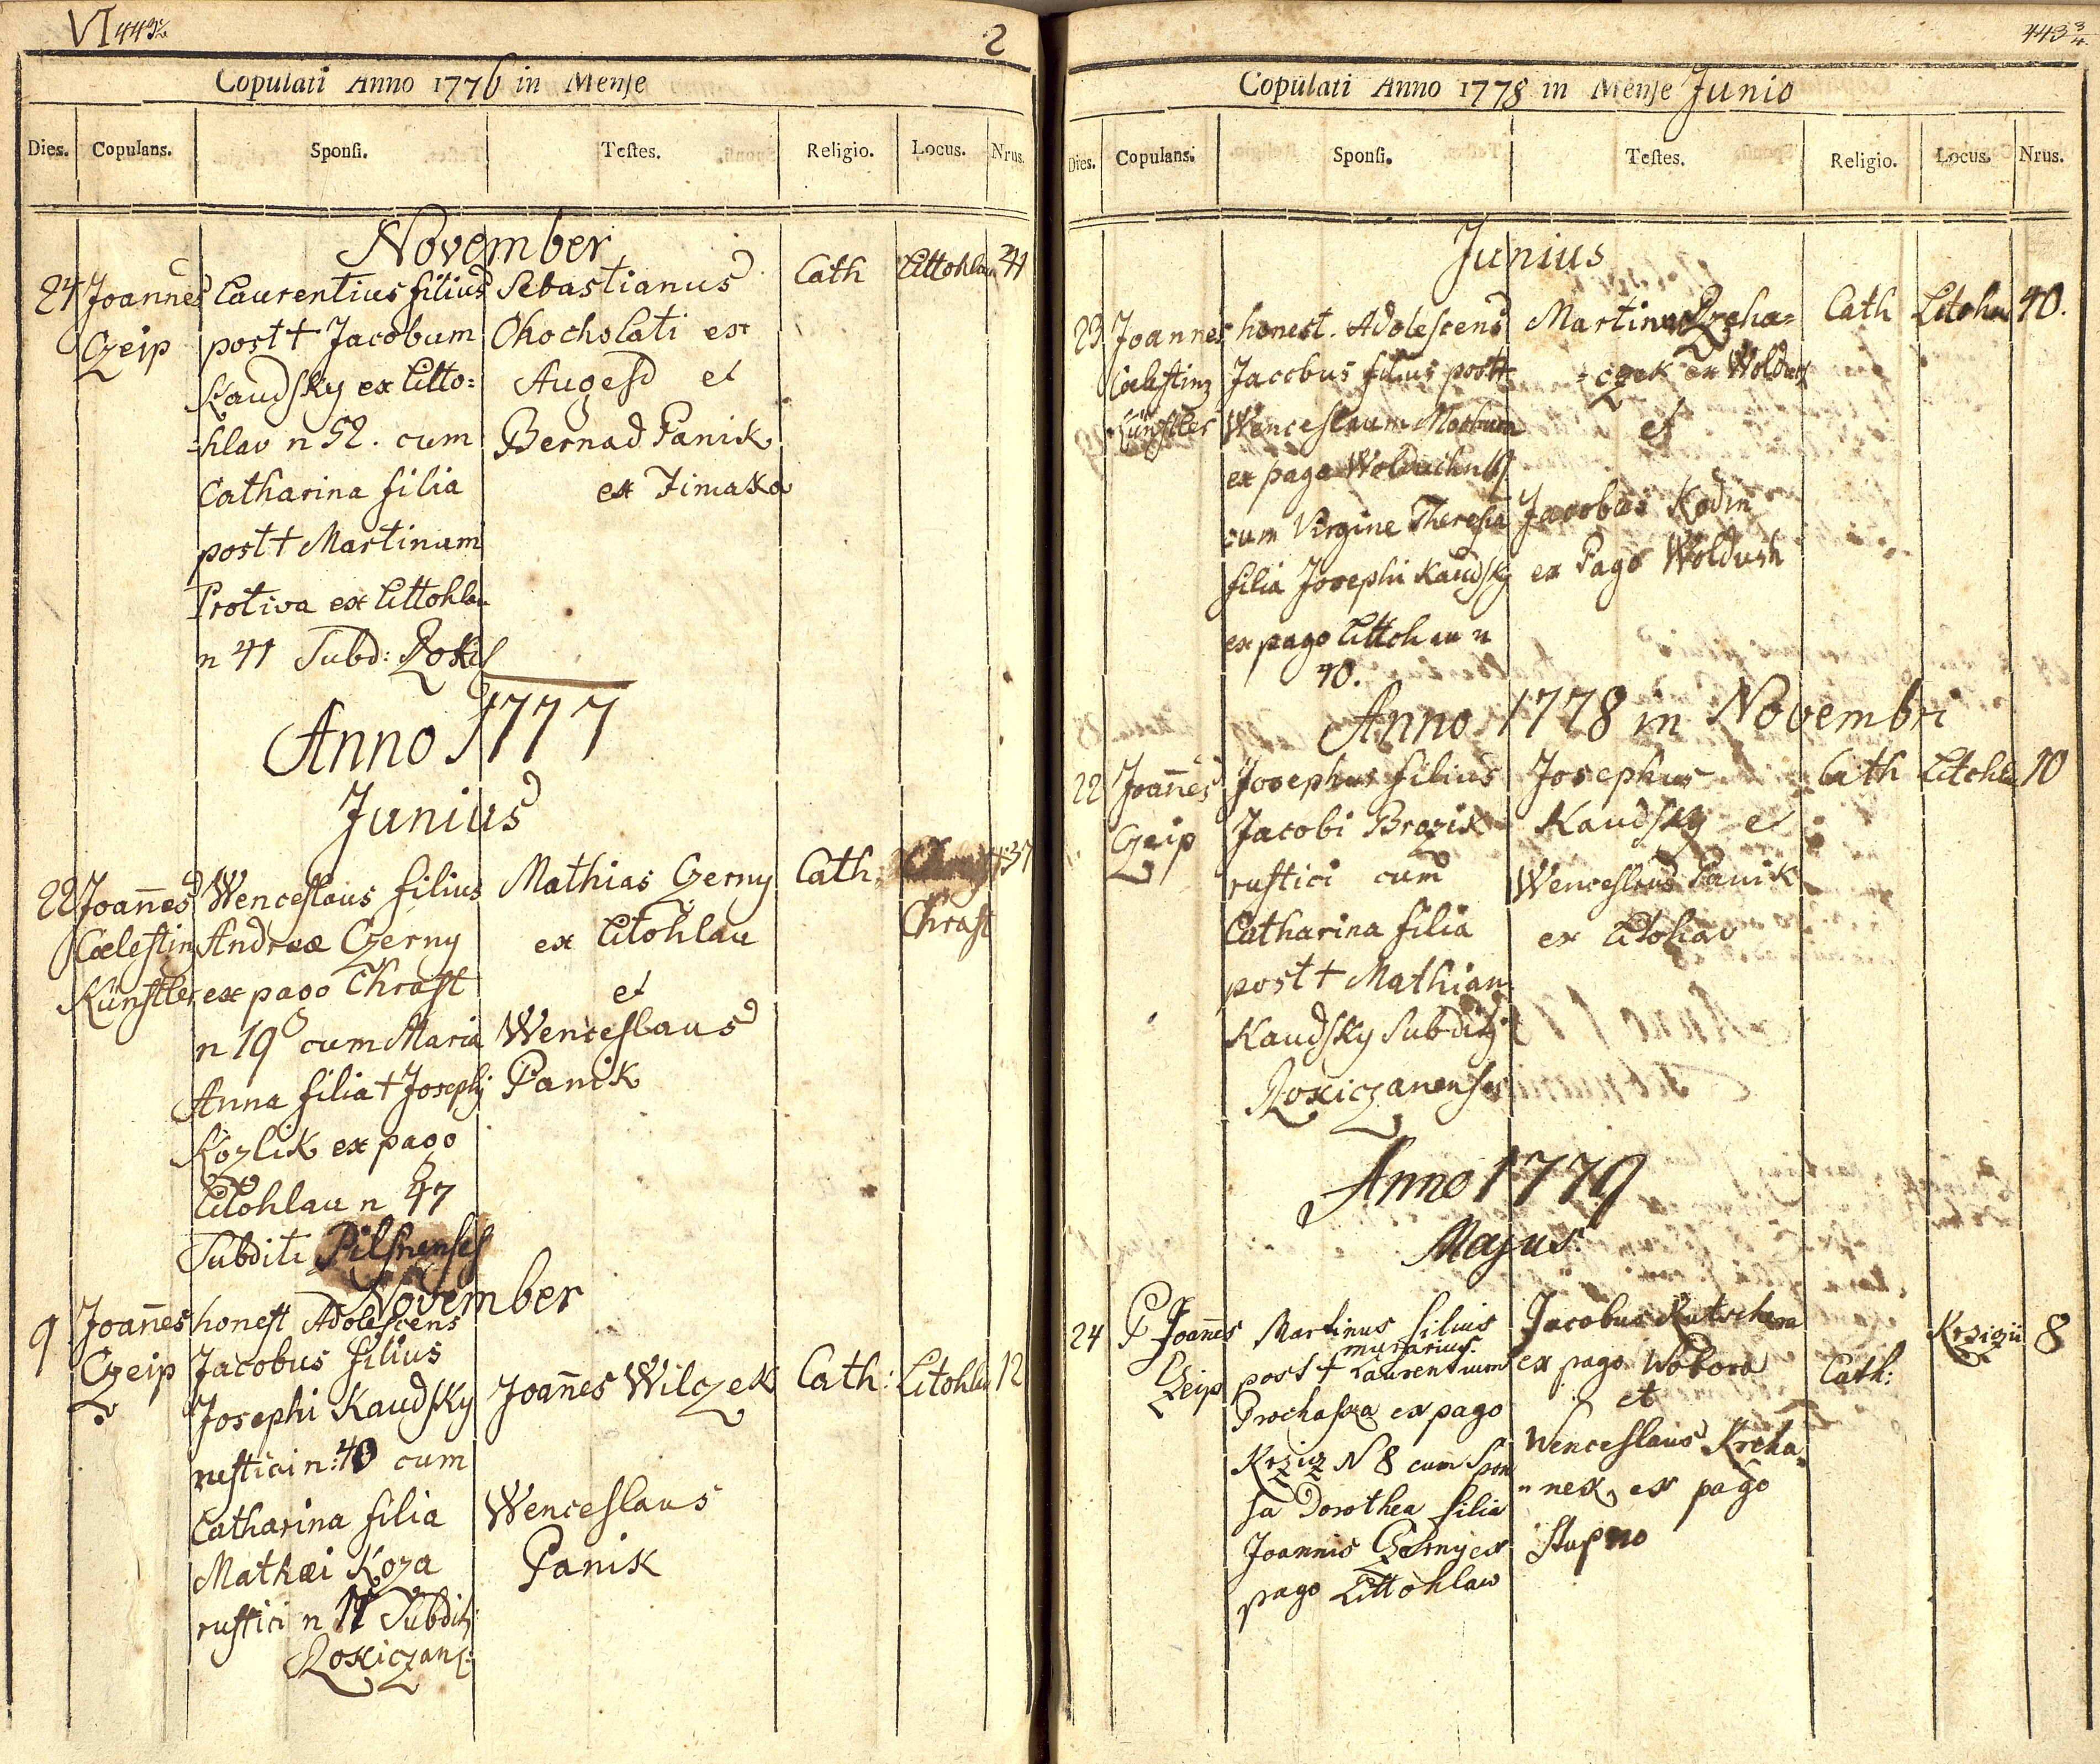 VI 443½
2
Copulati Anno 1776 in Mense
Dies. Copulans. Sponsi. Testes. Religio. Locus. Nrus.
November
24 Joannes Laurentius filius Sebastianus Cath Littohlau 41
Czeip post+ Jacobum Chocholati ex
Kaudsky ex Litto= Augesd et
=hlav n 52. cum Bernad Panik
Catharina filia ex Timaka
post+ Martinum
Protiva ex Littohlau
n 41 Subd: Rokis
Anno 1777
Junius
22 Joañes Wenceslaus filius Mathias Czerny Cath: 37
Cælestin Andreæ Czerny ex Litohlau Chrast
Künstler ex pago Chrast et
n 19 cum Maria Wenceslaus
Anna filia + Josephi Panik
Kozlik ex pago
Litohlau n 47
Subditi Pilsnenses
November
9 Joañes honest Adolescens
Czeip Jacobus filius
Josephi Kaudsky Joañes Wilczek Cath: Litohlau 12
rustici n: 40 cum
Catharina filia Wenceslaus
Mathæi Koza Panik
rustici n 12 Subditi
Rokiczans:
443¾
Copulati Anno 1778 in Mense Junio
Dies. Copulans. Sponsi. Testes. Religio. Locus. Nrus.
Junius
23 Joannes honest. Adolescens Martinus Cath Litohau 40.
Cælestinz Jacobus filius post+ =czek ex Wolduch
Künstler Wenceslaum et
ex pago Wolduch
cum Virgine Theresia Jacobus Kodin
filia Josephi Kaudsky ex Pago Woldush
ex pago Littohau n
40.
Anno 1778 in Novembri
22 Joañes Josephus filius Josephus Cath Litohlau 10
Czeip Jacobi Brozik Kaudsky et
rustici cum Wenceslaus Panik
Catharina filia ex Litohav
post+ Mathiam
Kaudsky Subditi
Rokiczanenses
Anno 1779
Majus
24 P Joañes Martinus filius Jacobus Kutschera Krzizii 8
murarius
Czeip post+ Laurentium ex pago Wobora Cath:
Prochaska ex pago et
Krziz N 8 cum Spon Wenceslaus Krcha=
sa Dorothea filia =nek ex pago
Joannis Czerny ex Stupno
pago Littohlaw